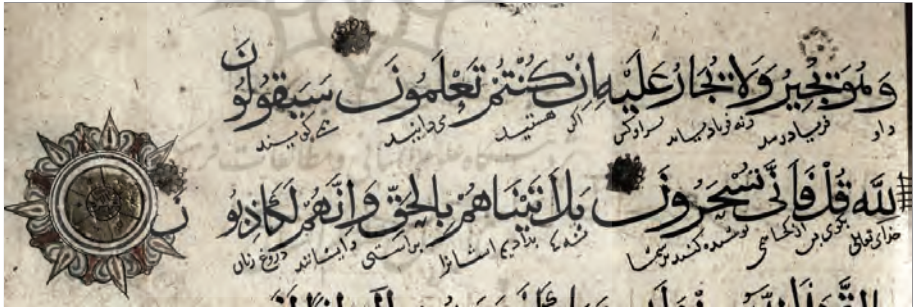 وَهُوَ يُجِيرُ وَلَا يُجَارُ عَلَيْهِ اِنْ كُنْتُمْ تَعْلَمُونَ سَيَقُولُونَ
فریاد رسد ونه فریاد بر او کس اگر هستید می دانید
لله قُلْ فَاَنَّى تُسْحَرُونَ بَلْ اَتَيْنَاهُمْ بِالْحَقِّ وَاِنَّهُمْ لَكَاذِبُونَ
خدای تعالی بگوی پس از کجا می پوشیده کنند بر شما بدادیم ایشانرا براستی وایشانند دروغ زنان